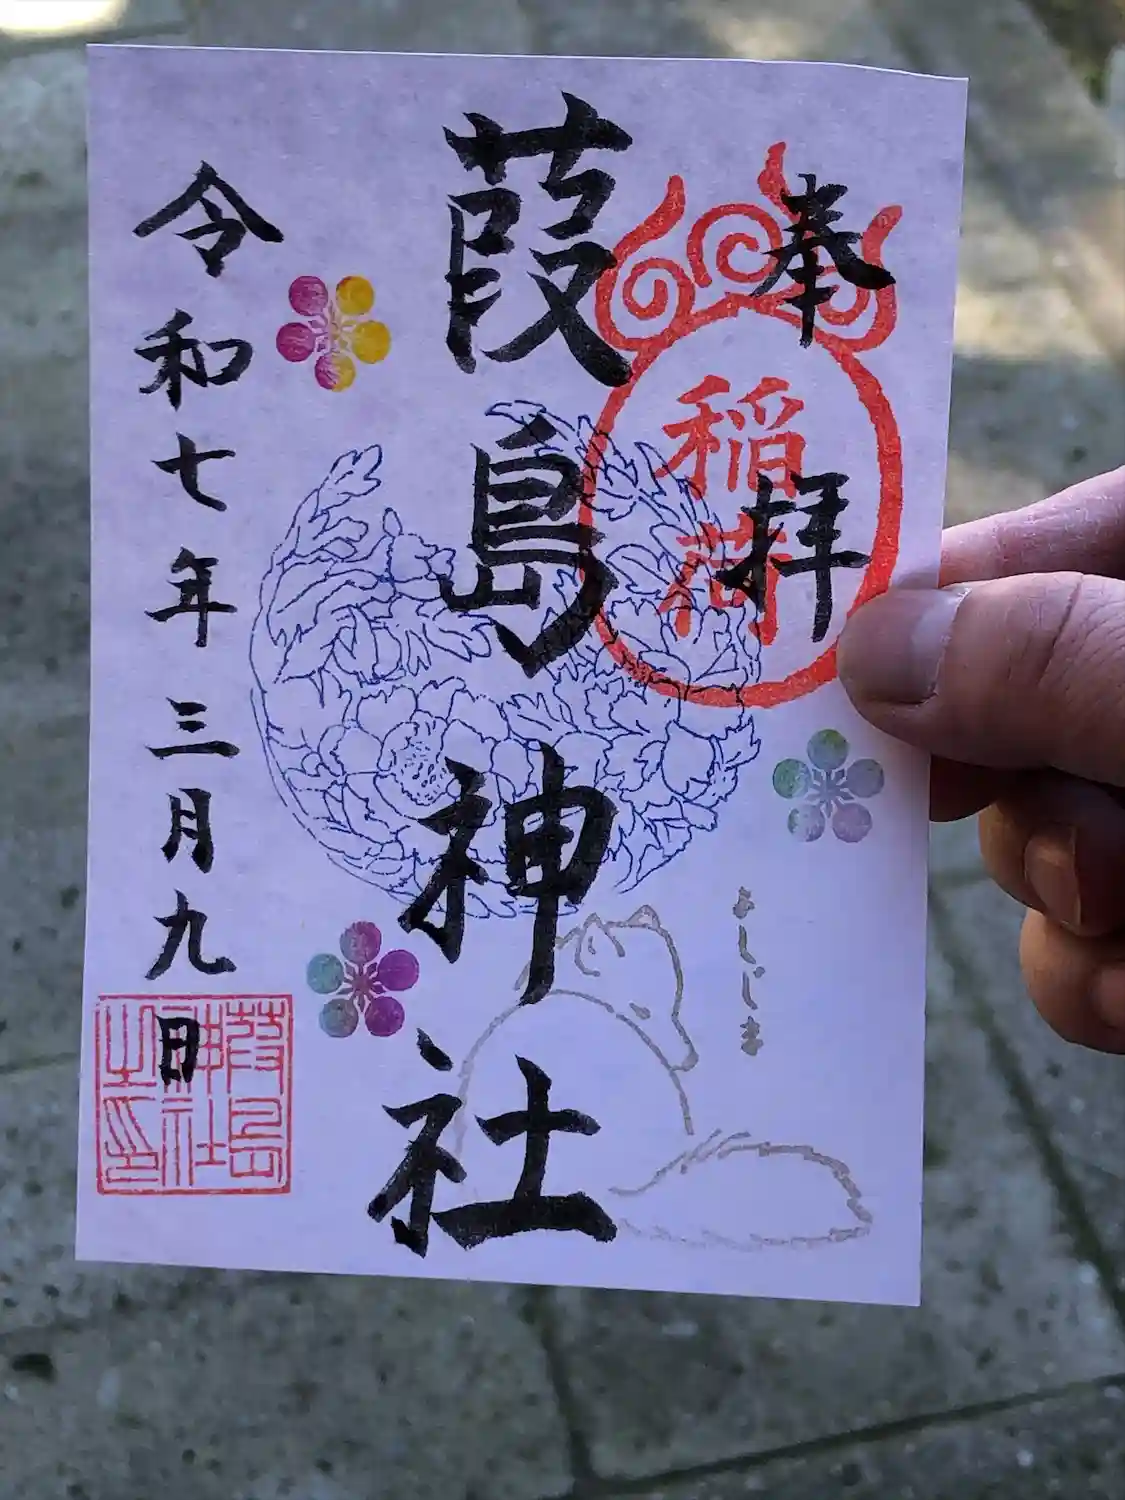 奉拝
稲荷
葭島神社
よしじま
令和七年三月九日
葭島
神社
之印